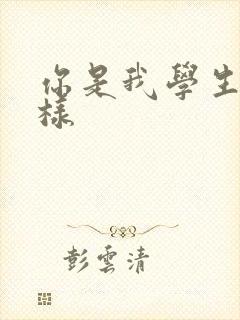 你是我學生
樣
彭雲清